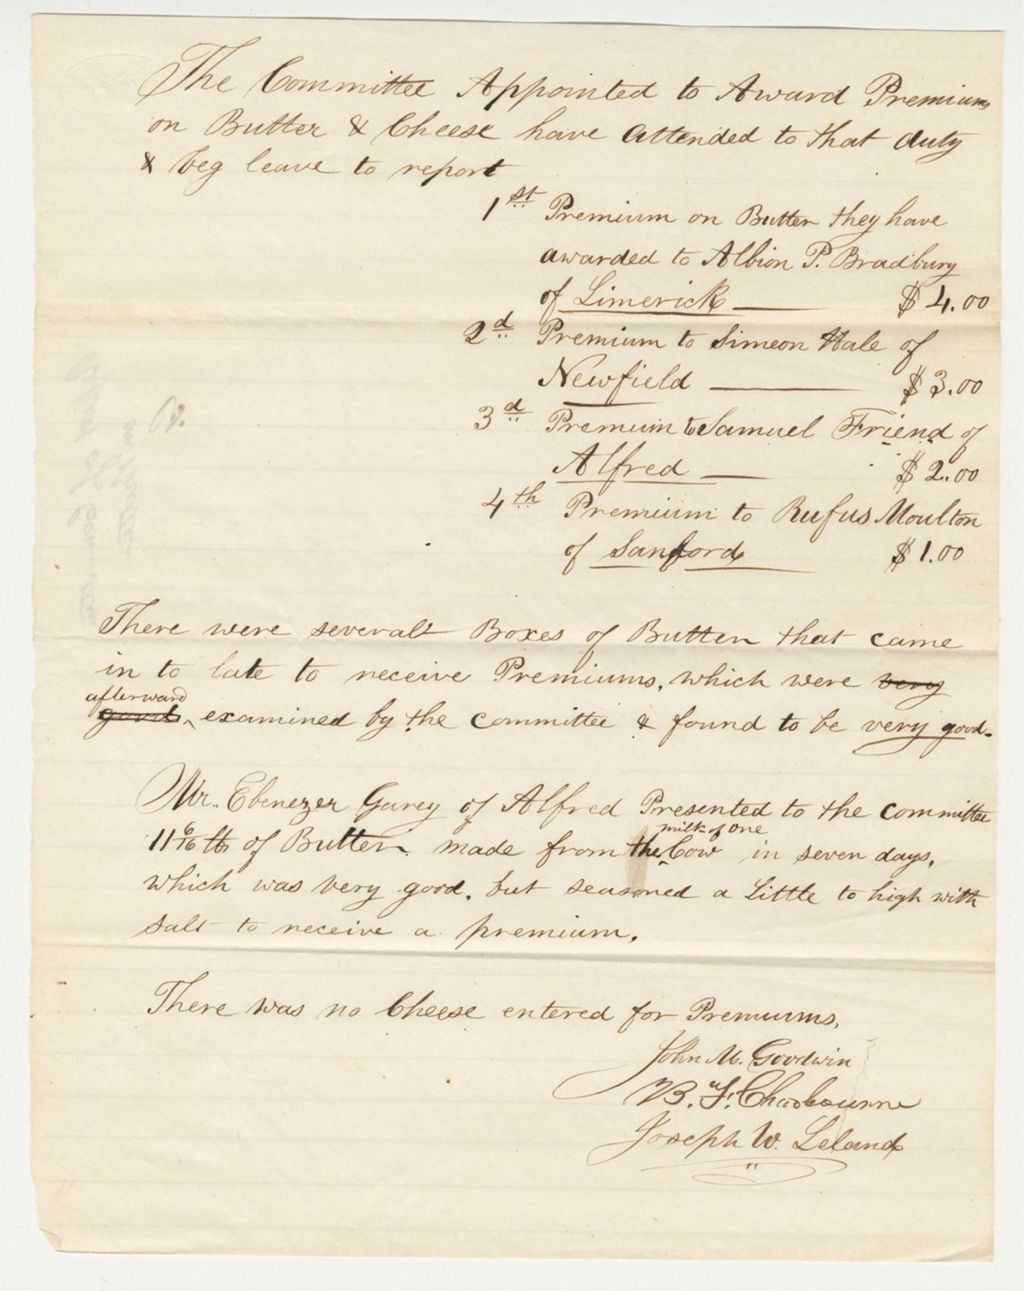 The Committee Appointed to Award Premiums
on Butter & Cheese have attended to that duty
& beg leave to report
1st Premium on Butter they have
awarded to Albion P. Bradbury
of Limerick — $4.00
2d Premium to Simeon Hale of
Newfield — $3.00
3d Premium to Samuel Friend of
Alfred — $2.00
4th Premium to Rufus Moulton
of Sanford $1.00
There were severalt Boxes of Butter that came
in to late to receive Premiums, which were very
afterward
good examined by the committee & found to be very good.
Mr. Ebenezer Garey of Alfred Presented to the committee
milk of one
11 6/16 lb of Butter made from the Cow in seven days,
which was very good, but seasoned a little to high with
salt to receive a premium.
There was no Cheese entered for Premiums,
John M. Goodwin
B. F. Chadbourne
Joseph W. Leland